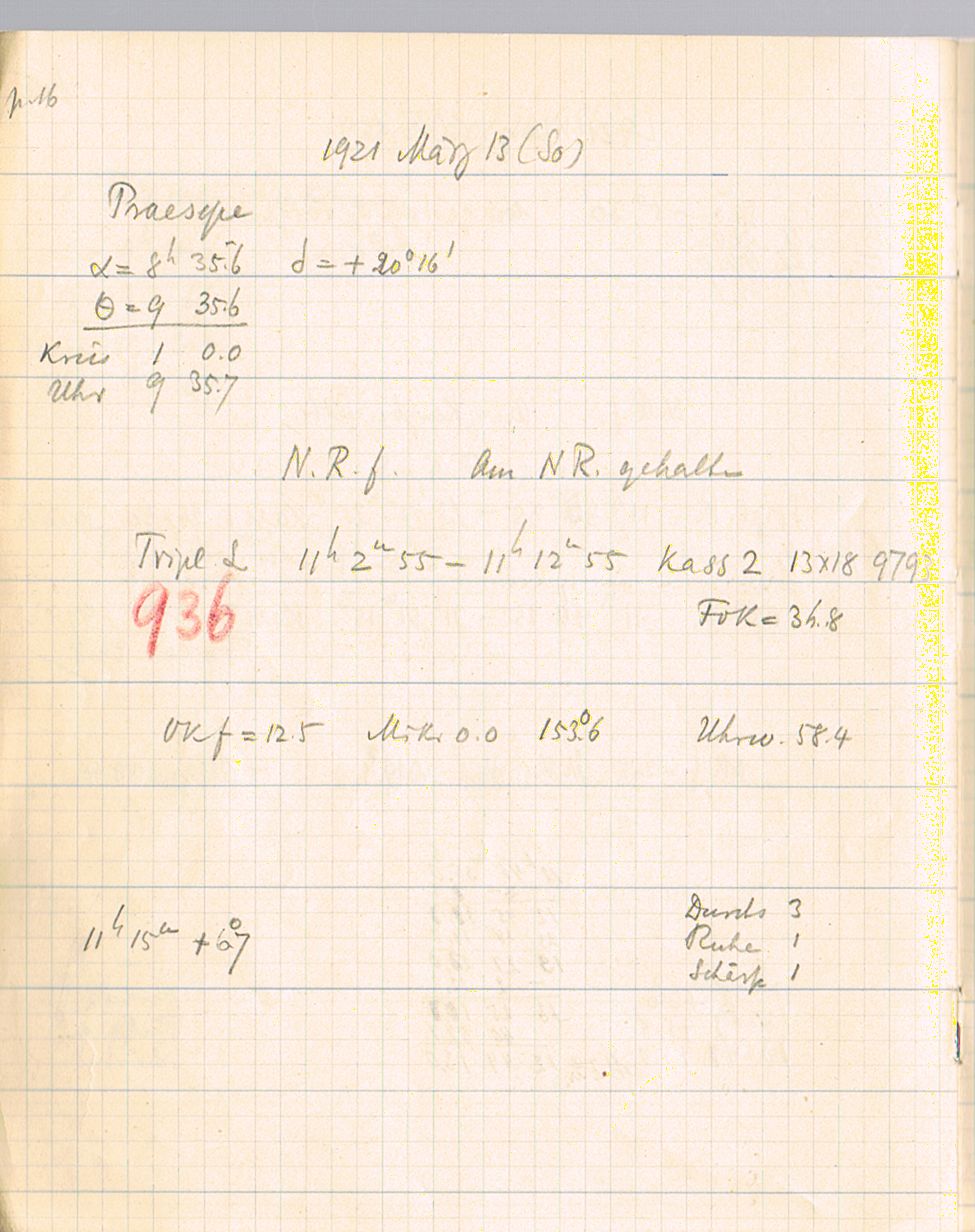 p. 16
1921 März 13 (So)
Praesepe
α = 8h 35.6 δ = + 20° 16'
θ = 9 35.6
Kreis 1 0.0
Uhr 9 35.7
N.R.f. Am N.R. gehalten
Tripl 11h 2m 55 – 11h 12m 55 Kass 2 13x18
936
Fok = 34.8
OKf = 12.5 Mikr 0.0 153°.6 Uhrw. 58.4
11h 15m + 6°.7
Durchs 3
Ruhe 1
Schärfe 1